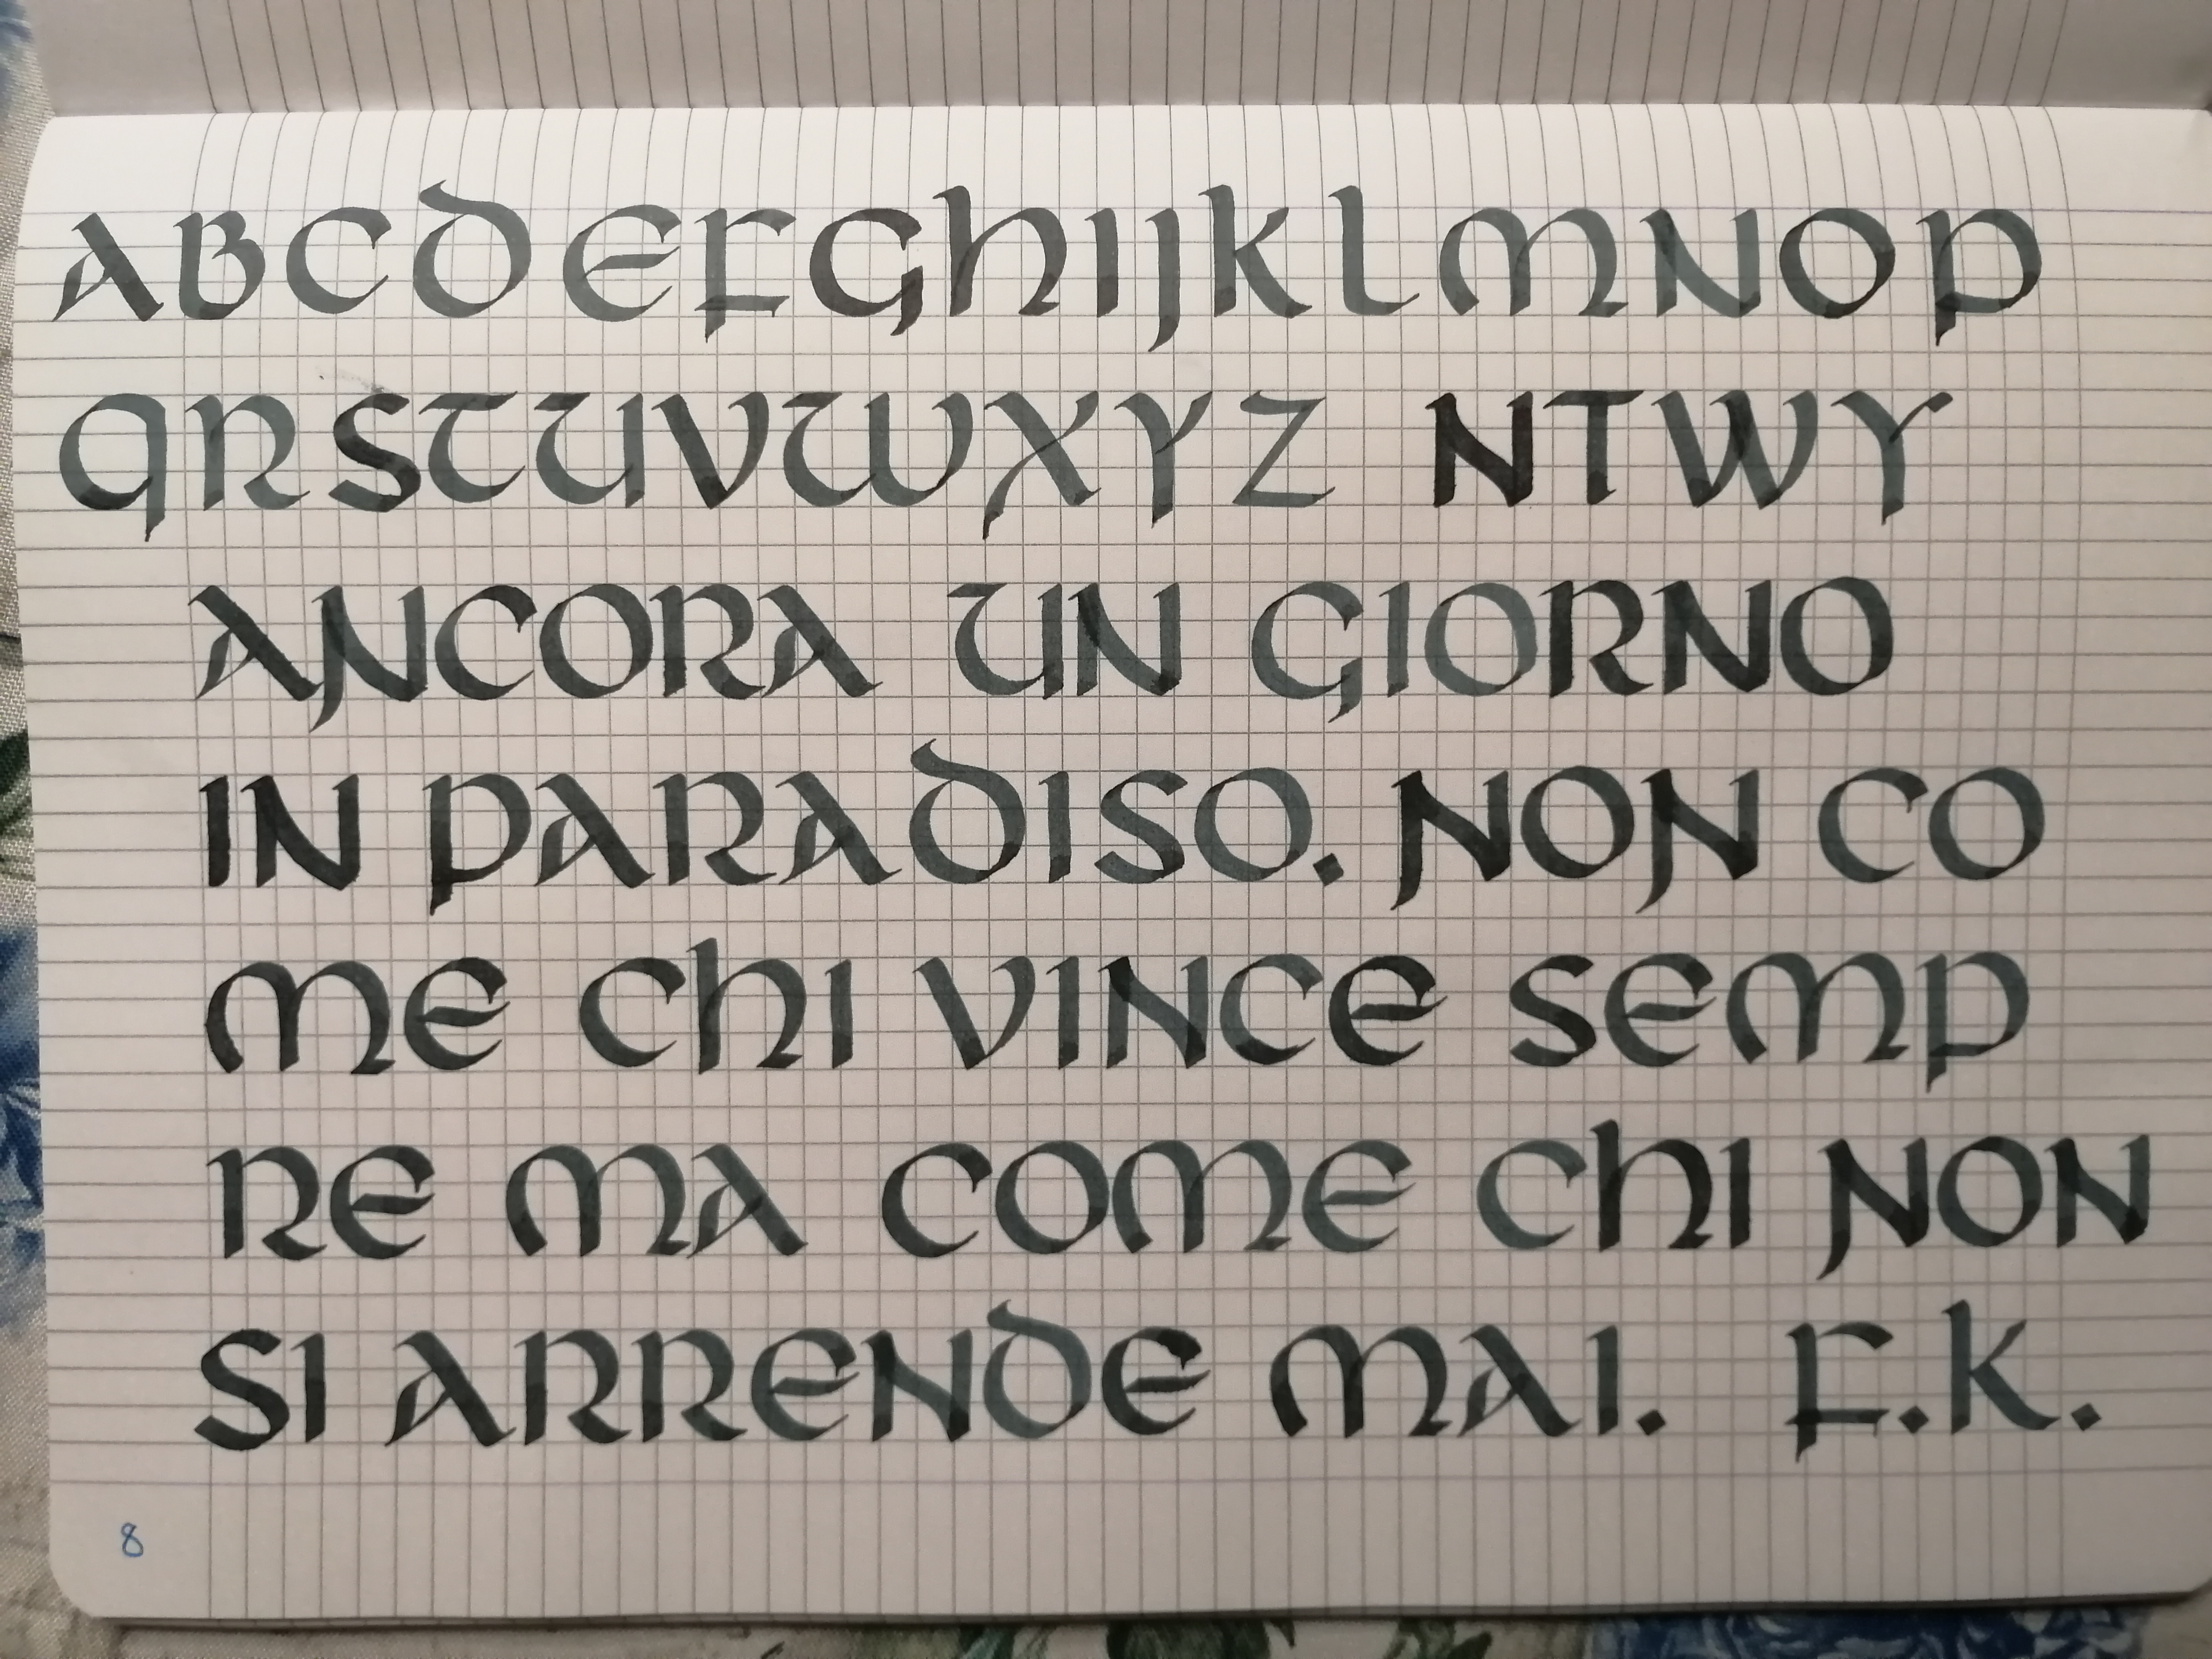 ABCDEFGHIJKLMNOP
QRSTUVWXYZ NTWY
ANCORA UN GIORNO
IN PARADISO. NON CO
ME CHI VINCE SEMP
RE MA COME CHI NON
SI ARRENDE MAI. F.K.
8